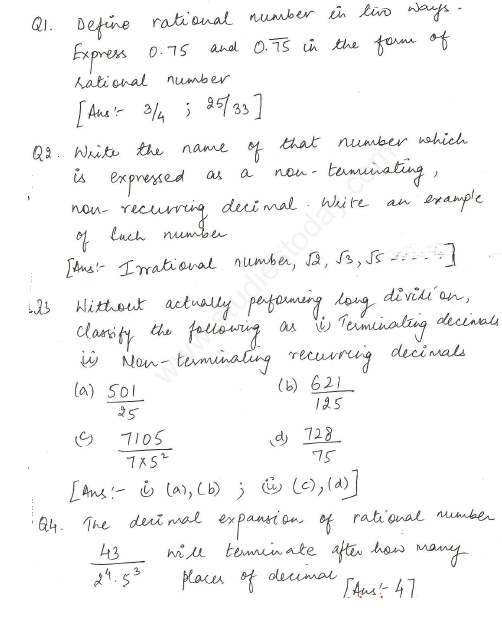 Q1. Define rational number in two ways.
Express 0.75 and 0.7̅5̅ in the form of
rational number
[Ans:- 3/4 ; 25/33]
Q2. Write the name of that number which
is expressed as a non-terminating,
non-recurring decimal. Write an example
of such number
[Ans:- Irrational number, √2, √3, √5 ------]
Q3 Without actually performing long division,
classify the following as i) Terminating decimals
ii) Non-terminating recurring decimals
(a) 501/25 (b) 621/125
(c) 7105/7×5² (d) 728/75
[Ans:- i) (a), (b) ; ii) (c), (d)]
Q4. The decimal expansion of rational number
43/2⁴·5³ will terminate after how many
places of decimal [Ans:- 4]
www.studiestoday.com